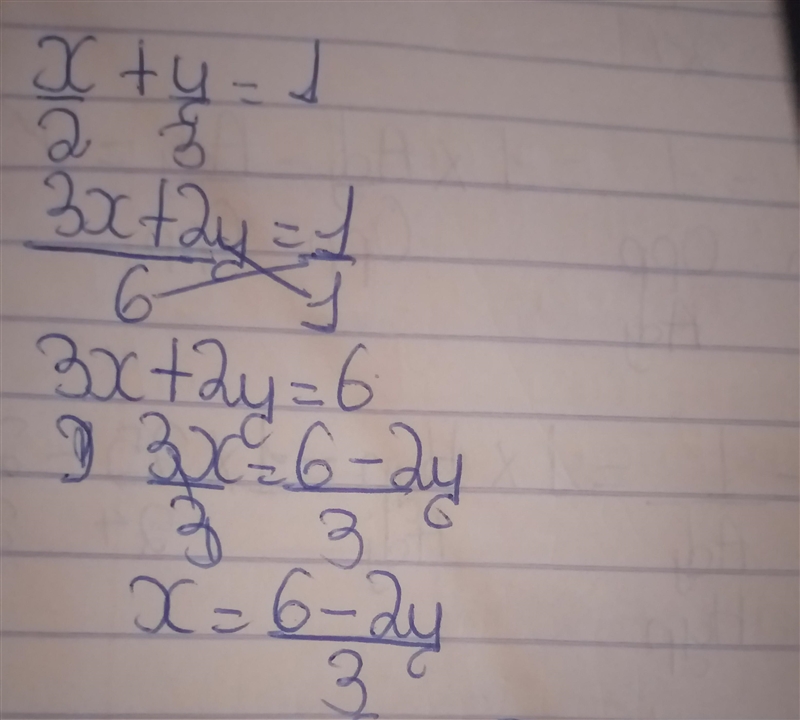 x/2 + y/3 = 1
(3x+2y)/6 = 1/1
3x+2y=6
3x/3 = (6-2y)/3
x = (6-2y)/3